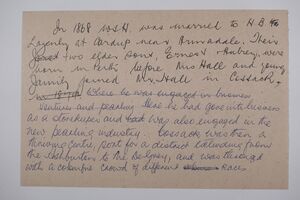 In 1868 W.S.H. was married to H.B.
Lazenby at Cardup near Armadale. Their
two elder sons, Ernest + Aubrey, were
born in Perth before Mrs Hall and young
family joined Mr. Hall in Cossack,
where he was engaged in business
ventures and pearling. Here he had gone into business
as a storekeeper and was also engaged in the
new pearling industry. Cossack was then a
thriving centre, port for a district extending from
the Ashburton to the De Grey, and was thronged
with a colourful crowd of different races